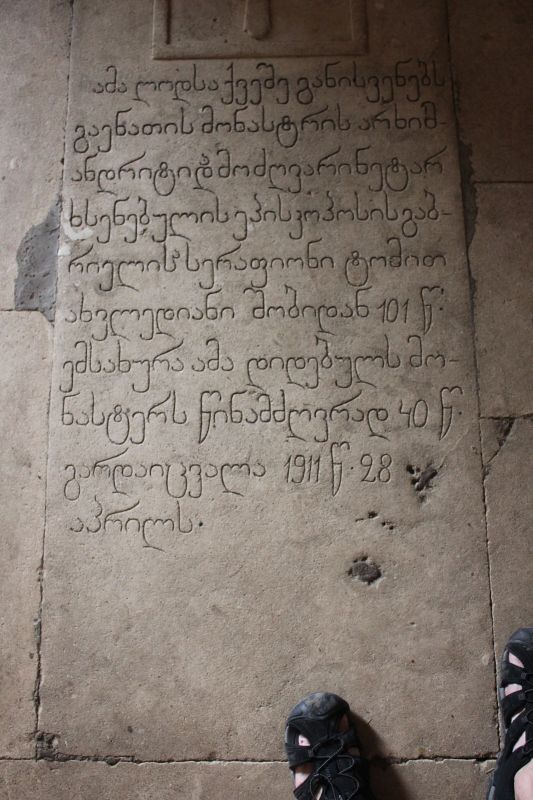 ამა ლოდსა ქვეშე განისვენებს
გაენათის მონასტრის არხიმ-
ანდრიტი და მოძღვარი ნეტარ
ხსენებულის ეპისკოპოსის გაბ-
რიელის სერაფიონი ტომით
ახვლედიანი შობიდან 101 წ.
ემსახურა ამა დიდებულს მო-
ნასტერს წინამძღვრად 40 წ.
გარდაიცვალა 1911 წ. 28
აპრილს.